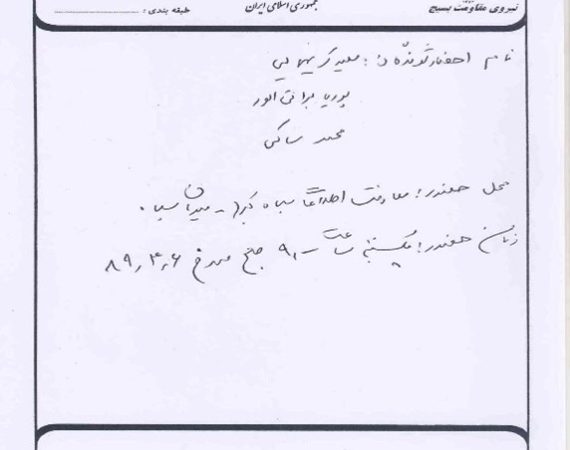 نیروی مقاومت بسیج
جمهوری اسلامی ایران
طبقه بندی :
نام احضارشونده ن : سعید کریمی
پوریا
محمد ساکی
محل حضور : معاونت اطلاعات سپاه - میدان سپاه .
زمان حضور : یکشنبه ساعت ۹ صبح مورخ ۸۹٫۴٫۶